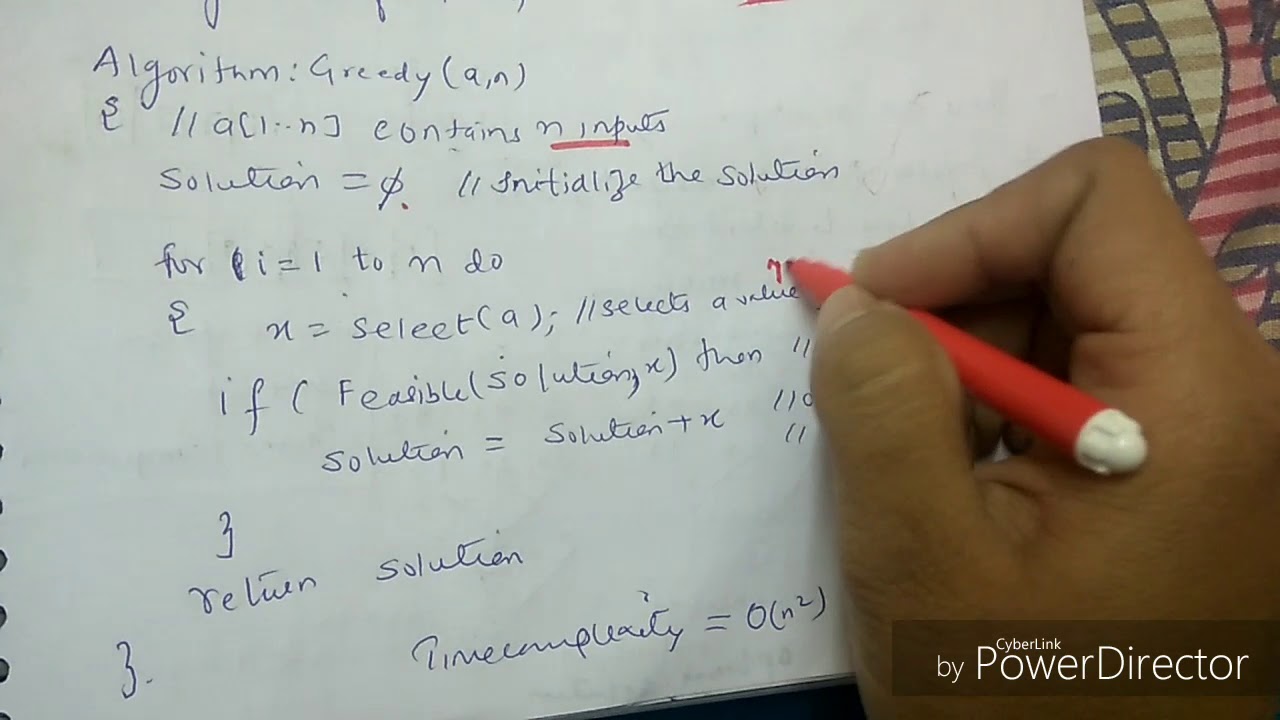 Algorithm: Greedy (a,n)
{ // a[1..n] contains n inputs
Solution = ϕ. // Initialize the solution
for i = 1 to n do
{ x = select(a); // selects a value
if ( Feasible(solution, x) then //
solution = solution + x //
//
}
return solution
}. Timecomplexity = O(n²)
CyberLink
by PowerDirector